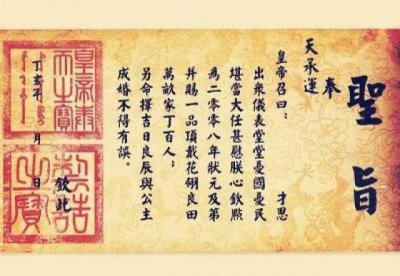 聖旨
奉
天承運
皇帝召曰：
才思
出衆儀表堂堂憂國憂民
堪當大任甚慰朕心欽點
為二〇〇八年狀元及第
并賜一品頂戴花翎良田
萬畝家丁百人；
另命擇吉日良辰與公主
成婚不得有誤。
欽此
丁亥年 月 日
皇帝奉天之寶
制誥之寶